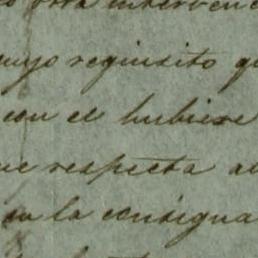 otra interven
cuyo requisito q
con el hubiere
que respecta a
en la consigna